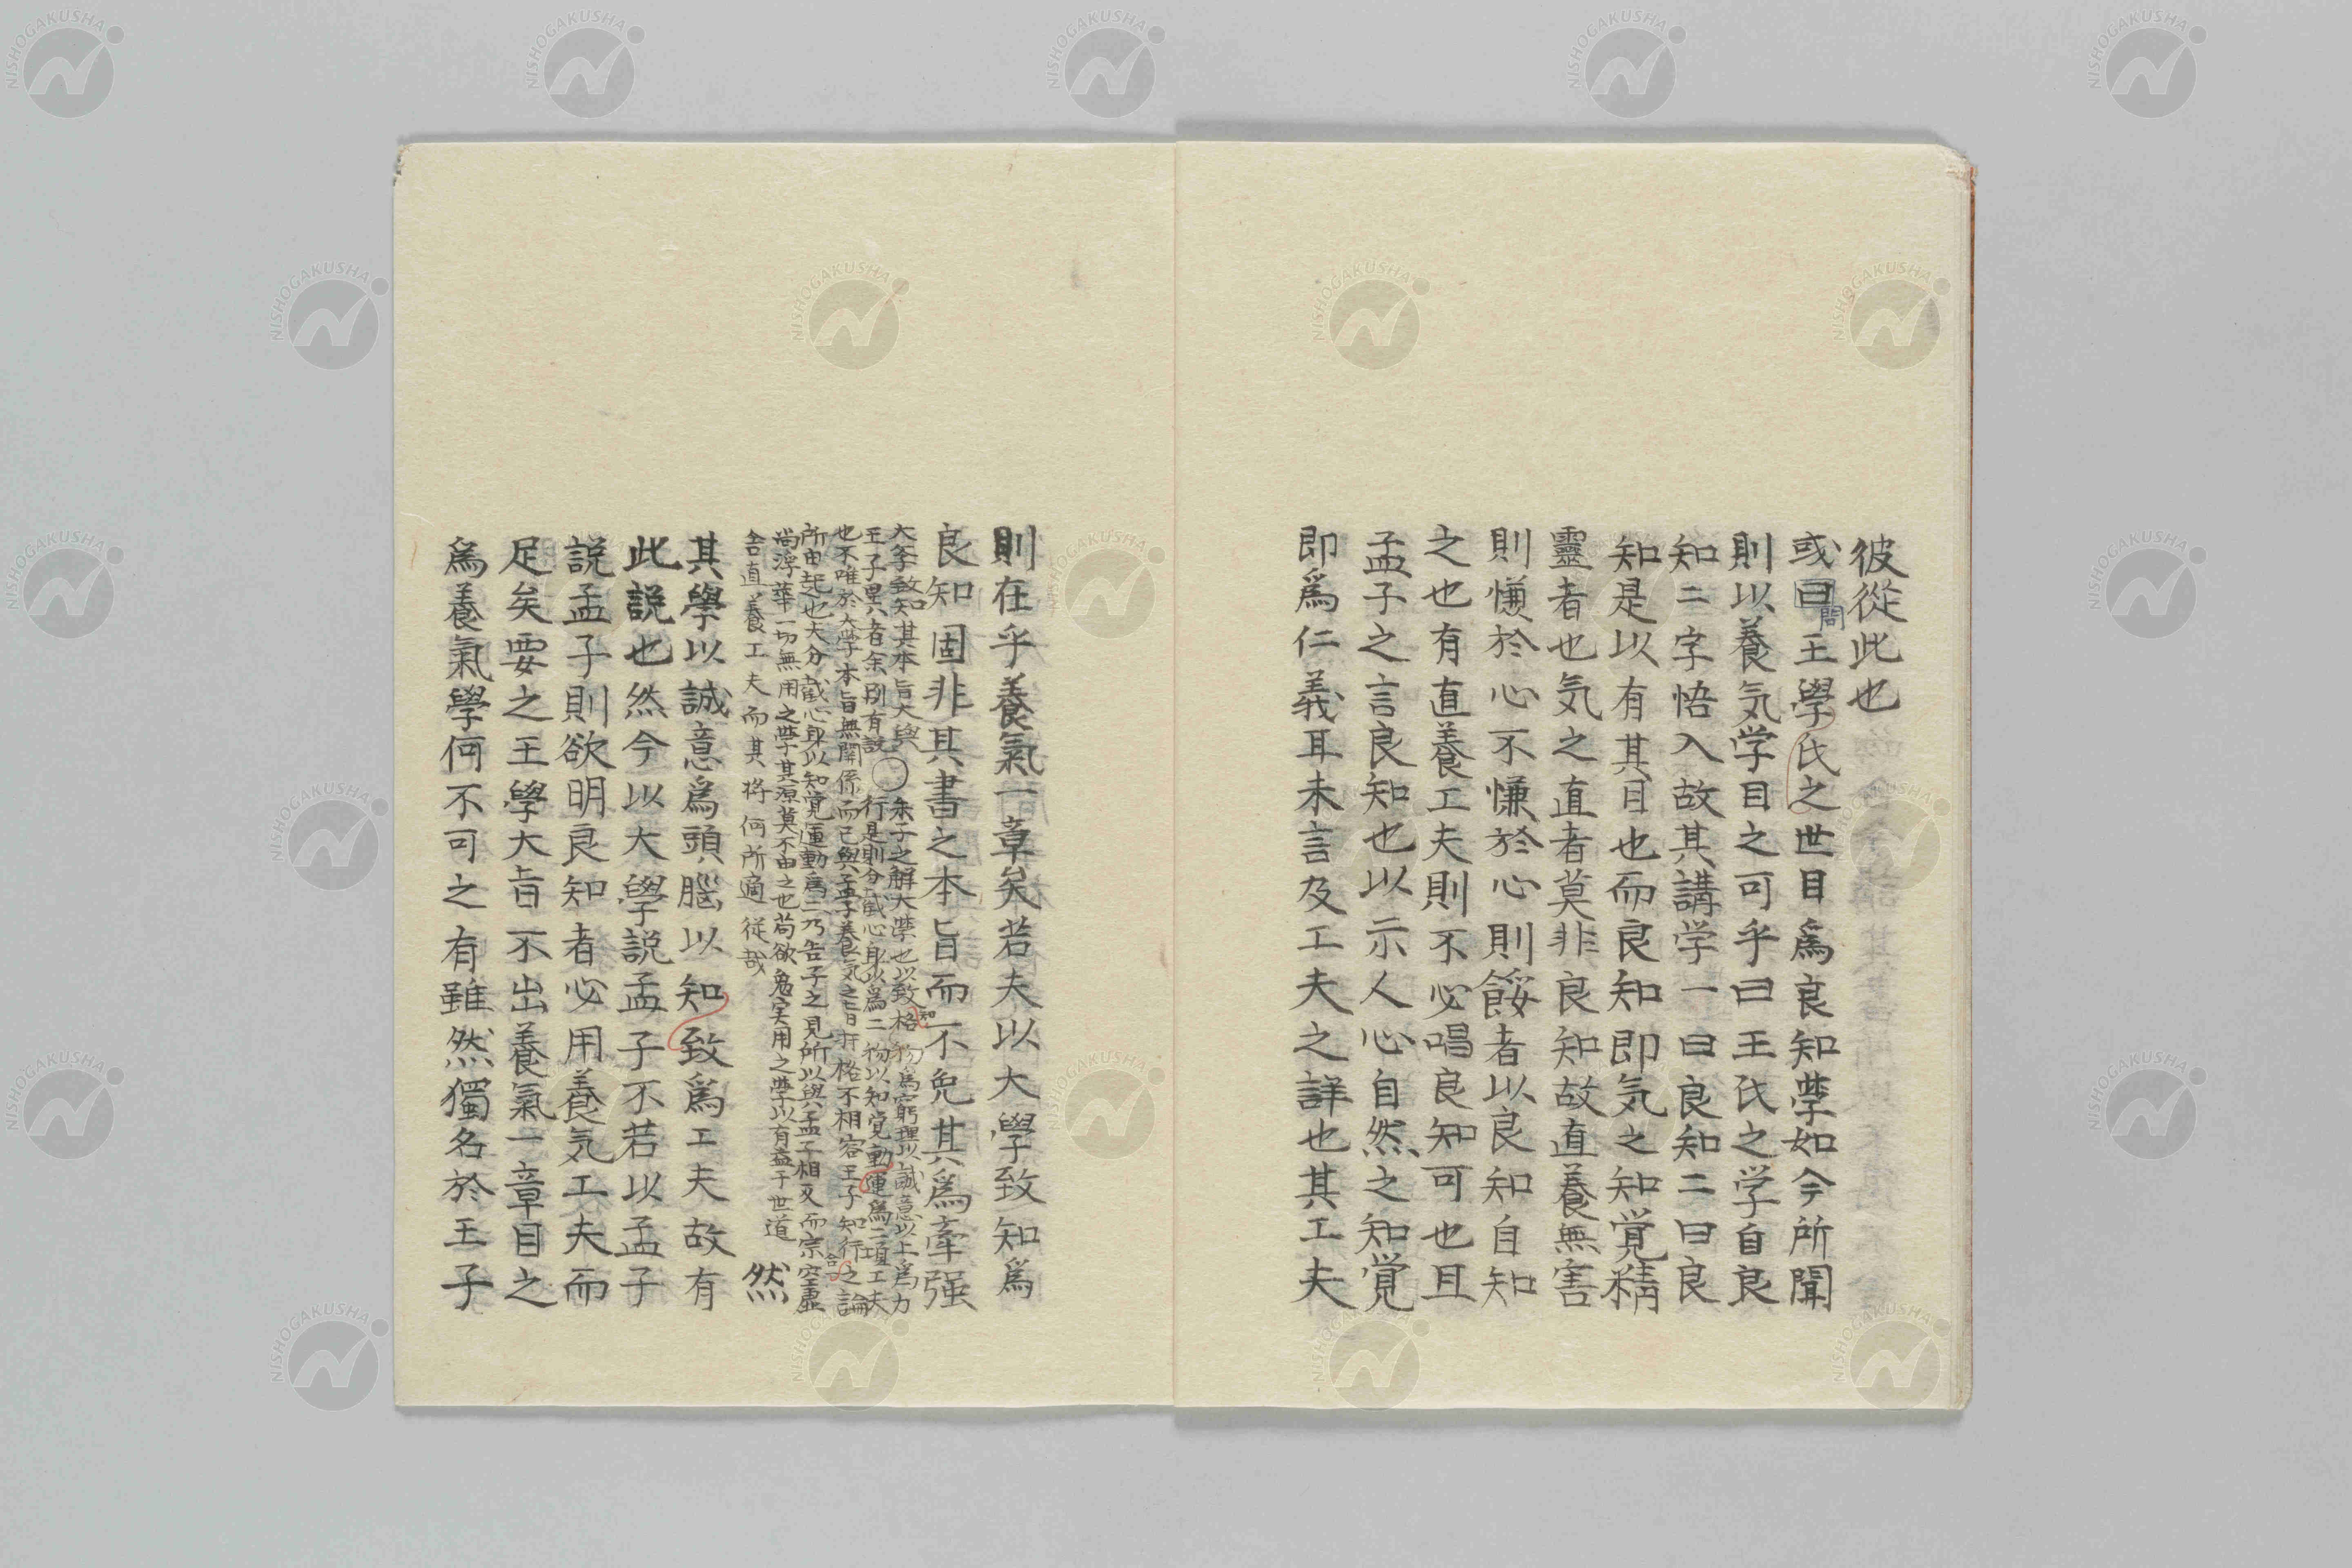 彼從此也
或曰問王學氏之世目爲良知學如今所聞
則以養気学目之可乎曰王氏之学自良
知二字悟入故其講学一曰良知二曰良
知是以有其目也而良知即気之知覚精
靈者也気之直者莫非良知故直養無害
則慊於心不慊於心則餒者以良知自知
之也有直養工夫則不必唱良知可也且
孟子之言良知也以示人心自然之知覚
即爲仁義耳未言及工夫之詳也其工夫
則在乎養氣一章矣若夫以大學致知爲
良知固非其書之本旨而不免其爲牽强
大学致知其本旨大與
王子異者余別有説
○
朱子之解大学也以致格知物爲窮理以誠意以上爲力
行是則分截心身以爲二物以知覚動運爲二項工夫
也不唯於大学本旨無関係而已與孟子養気之旨扞格不相容王子知行合之論
所由起也夫分截心身以知覚運動爲二乃告子之見所以與孟子相反而宗空虚
尚浮華一切無用之学其源莫不由之也苟欲免実用之学以有益于世道
舎直養工夫而其將何所適從哉
然
其學以誠意爲頭腦以知致爲工夫故有
此説也然今以大學説孟子不若以孟子
説孟子則欲明良知者必用養気工夫而
足矣要之王學大旨不出養氣一章目之
爲養氣學何不可之有雖然獨名於王子